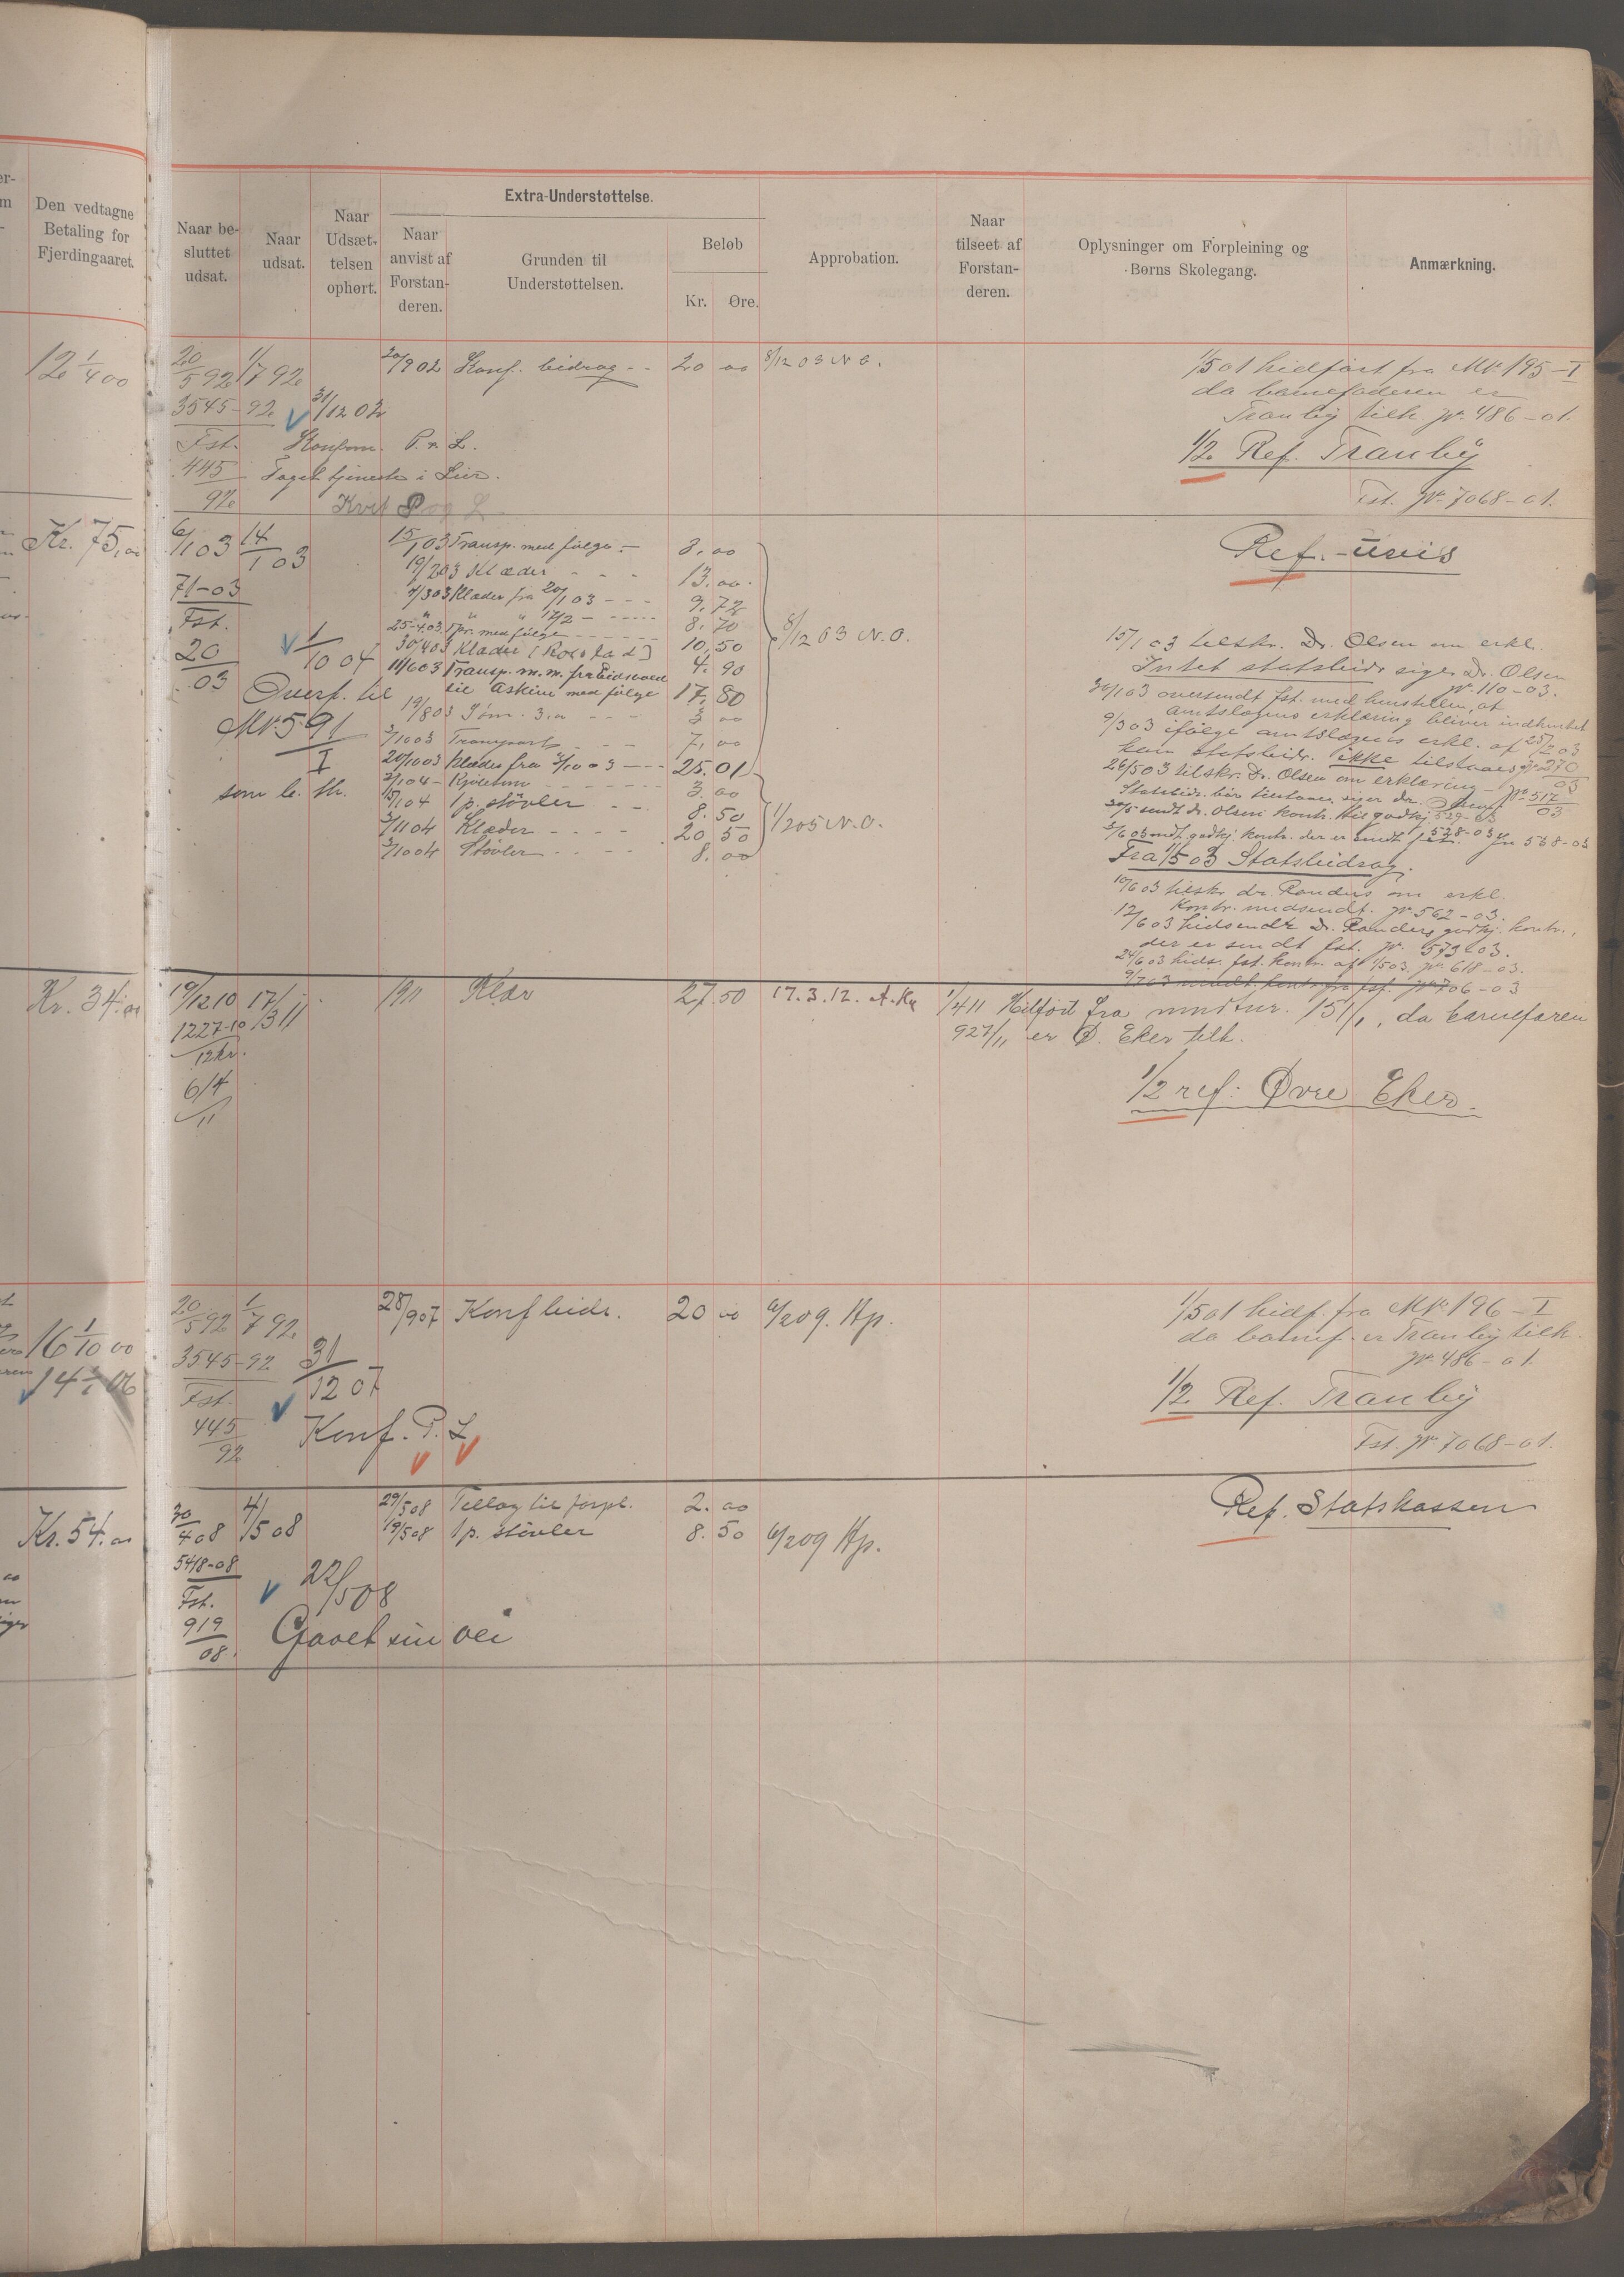 Den vedtagne
Betaling for
Fjerdingaaret.
Naar be-
sluttet
udsat.
Naar
udsat.
Naar
Udsæt-
telsen
ophørt.
Extra-Understøttelse.
Naar
anvist af
Forstan-
deren.
Grunden til
Understøttelsen.
Beløb
Kr. Øre.
Approbation.
Naar
tilseet af
Forstan-
deren.
Oplysninger om Forpleining og
Børns Skolegang.
Anmærkning.
12 1/4 00
20/5 92 1/7 92
3545-92 31/12 02
Fst. Konfirm. P. v. L.
445 Taget tjeneste i Lier.
92
20/9 02 Konf. bidrag 20 00 8/12 03 N.O.
1/5 01 hidført fra M№ 195-I
da barnefaderen er
Tranby tilh. Jr. 486-01.
1/2 Ref. Tranby
Fst. Jr. 7068-01.
Kr. 75,00
6/1 03 14/1 03
71-03
Fst.
20/03
1/10 04
Overf. til
M№ 591
I
som
15/1 03 Transp. med følge 3.00
19/2 03 Klæder 13.00
9/3 03 Klæder fra 20/1 03 9.72
" " 17/2 8.70
25-4.03 med følge
30/4 03 Klæder [Rolstad] 10.50
11/6 03 Transp. m.m. fra Eidsvold 4.90
til Askim med følge 17.80
19/8 03 3 00
3/10 03 Transport 7.00
20/10 03 Klæder fra 3/10 03 25.01
3.00
15/1 04 1 p. støvler 8.50
3/11 04 Klæder 20 50
3/10 04 Støvler 8.00
8/12 03 N.O.
1/2 05 N.O.
Ref.-uvis
15/1 03 tilskr. Dr. Olsen om erkl.
Intet statsbidr. siger Dr. Olsen
Jr. 110-03.
30/1 03 oversendt fst. med henstillen, at
amtslægens erklæring bliver indhentet
9/3 03 ifølge amtslægens erkl. af 25/2 03
kan statsbidr. ikke tilstaaes Jr. 270/03
26/5 03 tilskr. Dr. Olsen om erklæring Jr. 517/03
Statsbidr. bør tilstaaes siger dr. Olsen
30/5 sendt dr. Olsen kontr. til godkj. 529-03
Fra 1/5 03 Statsbidrag.
10/6 03 tilskr. dr. Randers om erkl.
Kontr. medsendt. Jr. 562-03.
12/6 03 hidsendte Dr. Randers godkj. kontr.,
der er sendt fst. Jr. 573-03.
24/6 03 hids. fst. kontr. af 1/5 03. Jr. 618-03.
Kr. 34.00
19/12 10 17/3 11
1227-10
12 kr.
6/4
11
1911 Klær 27.50 17.3.12. A.Kn
1/4 11 Hitført fra mndtnr. 151/1, da barnefaren
927/11 er Ø. Eker tilh.
1/2 ref: Øvre Eker.
16 1/10 00
14 06
20/5 92 1/7 92
3545-92
31/12 07
Fst.
445
92
Konf. P. L
28/9 07 Konf bidr. 20 00 6/2 09. Hp.
1/5 01 hidf. fra M№ 196-I
da barnef. er Tranby tilh.
Jr. 486-01.
1/2 Ref. Tranby
Fst. Jr. 7068-01.
Kr. 54.00
30/4 08 4/5 08
5418-08
Fst.
919
08.
22/5 08
Gaaet sin vei
29/5 08 Tillæg til forpl. 2.00
19/5 08 1 p. støvler 8.50 6/2 09 Hp.
Ref. Statskassen